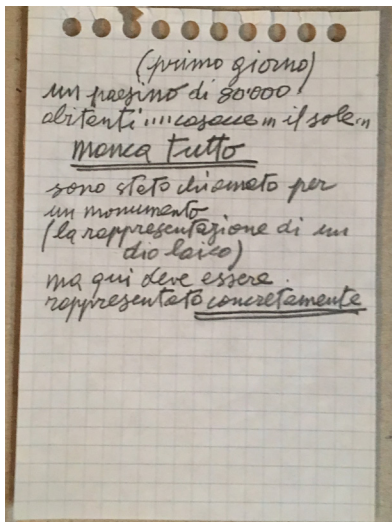 (primo giorno)
un paesino di 80'000
abitanti .... casacce ... il sole ...
manca tutto
sono stato chiamato per
un monumento
(la rappresentazione di un
dio laico)
ma qui deve essere
rappresentato concretamente